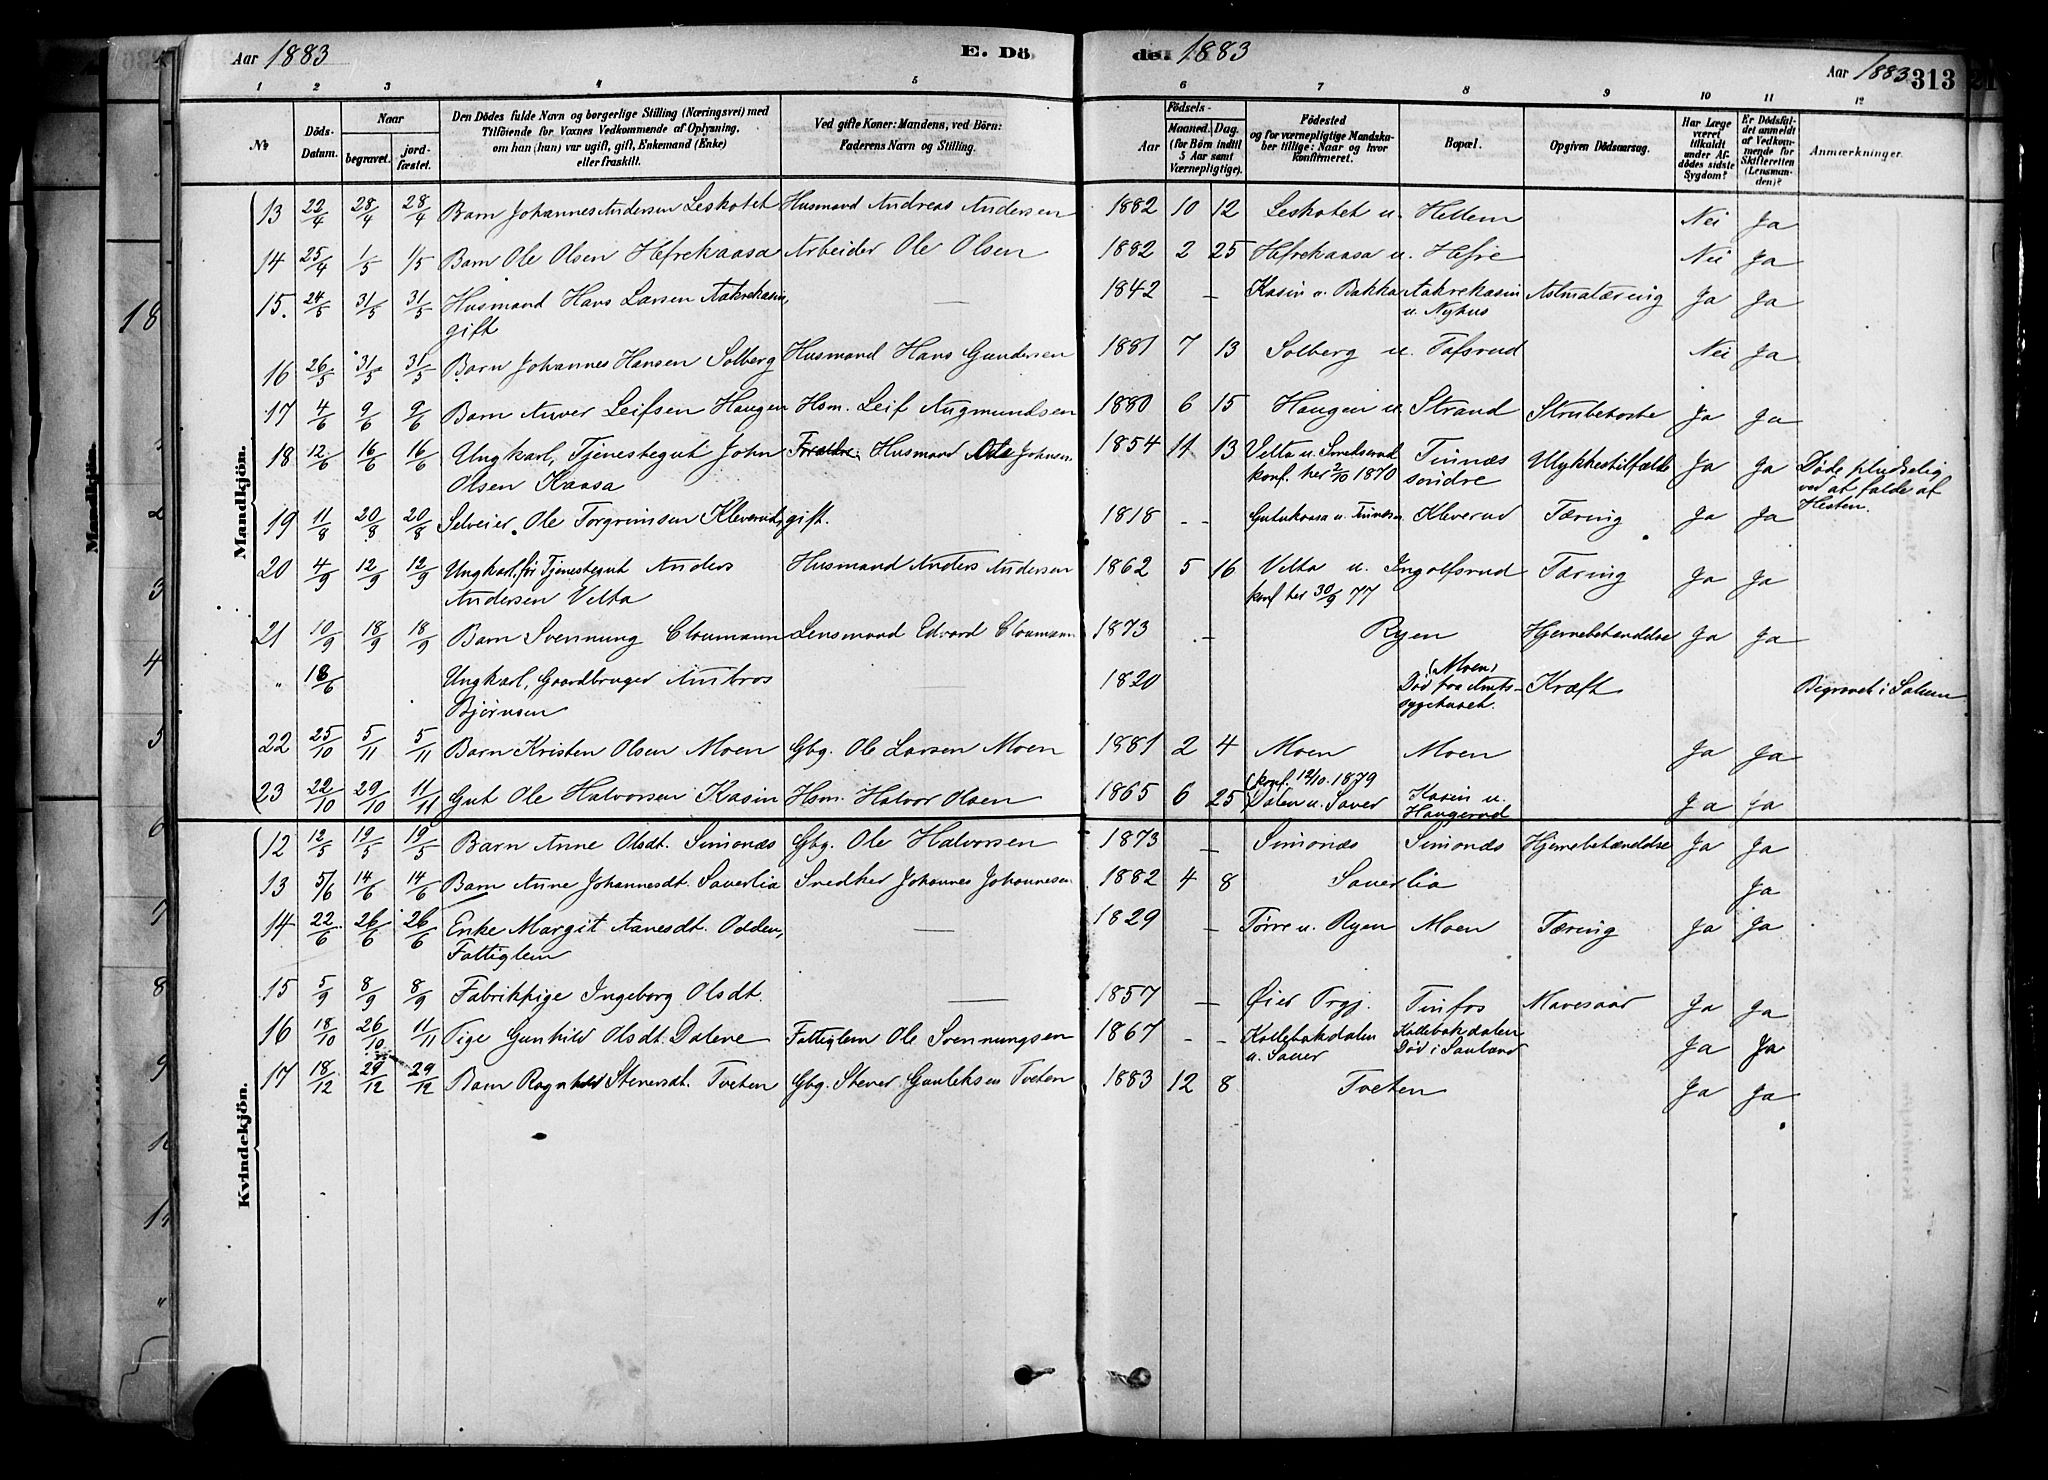 Aar 1883 E. Dö
de. 1883 Aar 1883 313
1 2 3 4 5 6 7 8 9 10 11 12
No
Döds-Datum.
Naar
begravet. jordfæstet.
Den Dödes fulde Navn og borgerlige Stilling (Næringsvei) med
Tilföiende for Voxnes Vedkommende af Oplysning,
om han (hun) var ugift, gift, Enkemand (Enke)
eller fraskilt.
Ved gifte Koner: Mandens, ved Börn:
Faderens Navn og Stilling.
Födsels-
Aar Maaned. Dag.
(for Börn indtil
5 Aar samt
Værnepligtige).
Födested
og for værnepligtige Mandska-
ber tillige: Naar og hvor
konfirmeret.
Bopæl.
Opgiven Dödsaarsag.
Har Læge
været
tilkaldt
under Af-
dödes sidste
Sygdom?
Er Dödsfal-
det anmeldt
af Vedkom-
mende for
Skifteretten
(Lensman-
den)?
Anmærkninger.
Mandkjön.
13 22/4 28/4 28/4 Barn Johannes Andersen Leskotet Husmand Andreas Andersen 1882 10 12 Leskotet u. Hellem Nei Ja
14 25/4 1/5 1/5 Barn Ole Olsen Hefrekaasa Arbeider Ole Olsen 1882 2 25 Hefrekaasa u. Hefre Nei Ja
15. 24/5 31/5 31/5 Husmand Hans Larsen Aakrekasin, — 1842 - Kasin u. Bakka Aakrekasin Astmatæring Ja Ja
gift u. Nyhus
16 26/5 31/5 31/5 Barn Johannes Hansen Solberg Husmand Hans Gundersen 1881 7 13 Solberg u. Tafsrud Nei Ja
17 4/6 9/6 9/6 Barn Anver Leifsen Haugen Hsm. Leif Augmundsen 1880 6 15 Haugen u. Strand Strubehoste Ja Ja
18 12/6 16/6 16/6 Ungkarl, Tjenestegut John Forældre: Husmand Ole Johnsen 1854 11 13 Velta u. Tinnæs Ulykkestilfælde Ja Ja Døde pludselig
Olsen Kaasa konf. her 2/10 1870 söndre ved at falde af
Hesten.
19 11/8 20/8 20/8 Selveier Ole Torgrimsen Kleverud, gift. 1818 - - Gutukaasa u. Tinnes Kleverud Tæring Ja Ja
20 4/9 12/9 12/9 Ungkarl, før Tjenestegut Anders Husmand Anders Andersen 1862 5 16 Velta u. Ingolfsrud Tæring Ja Ja
Andersen Velta konf her 30/9 77
21 10/9 18/9 18/9 Barn Svennung Cloumann Lensmand Edvard Cloumann 1873 - Ryen Hjernebetændelse Ja Ja
" 18/6 Ungkarl, Gaardbruger Ambros — 1820 (Moen) Død paa Amts- Kræft Begravet i
Bjørnsen sygehuset.
22 25/10 5/11 5/11 Barn Kristen Olsen Moen Gbg. Ole Larsen Moen 1881 2 4 Moen Moen Ja Ja
23 22/10 29/10 11/11 Gut Ole Halvorsen Kasin Hsm. Halvor Olsen 1865 6 25 (konf. 12/10. 1879 Dalen u. Sauer Kasin u. Haugerud Ja Ja
Kvindekjön.
12 12/5 19/5 19/5 Barn Anne Olsdt. Simonæs Gbg. Ole Halvorsen 1873 — Simonæs Simonæs Hjernebetændelse Ja Ja
13 5/6 14/6 14/6 Barn Anne Johannesdt. Sauerlia Snedker Johannes Johannesen 1882 4 8 Sauerlia Ja
14 22/6 26/6 26/6 Enke Margit Aanesdt. Odden, — 1829 — Tørre u. Ryen Moen Tæring Ja Ja
Fattiglem
15 5/9 8/9 8/9 Fabrikpige Ingeborg Olsdt. — 1857 — Øier Prgj. Tinfos Mavesaar Ja Ja
16 18/10 26/10 11/11 Pige Gunhild Olsdt. Dalene Fattiglem Ole Svennungsen 1867 - - Kollebakdalen Kollebakdalen Ja Ja
u. Sauer Død i Sauland
17 18/12 29/12 29/12 Barn Ragnhild Steversdt. Tveten Gbg. Stever Gunleksen Tveten 1883 12 8 Tveten Ja Ja
Mandkjön.
18
2
3
4
5
6
7
8
9